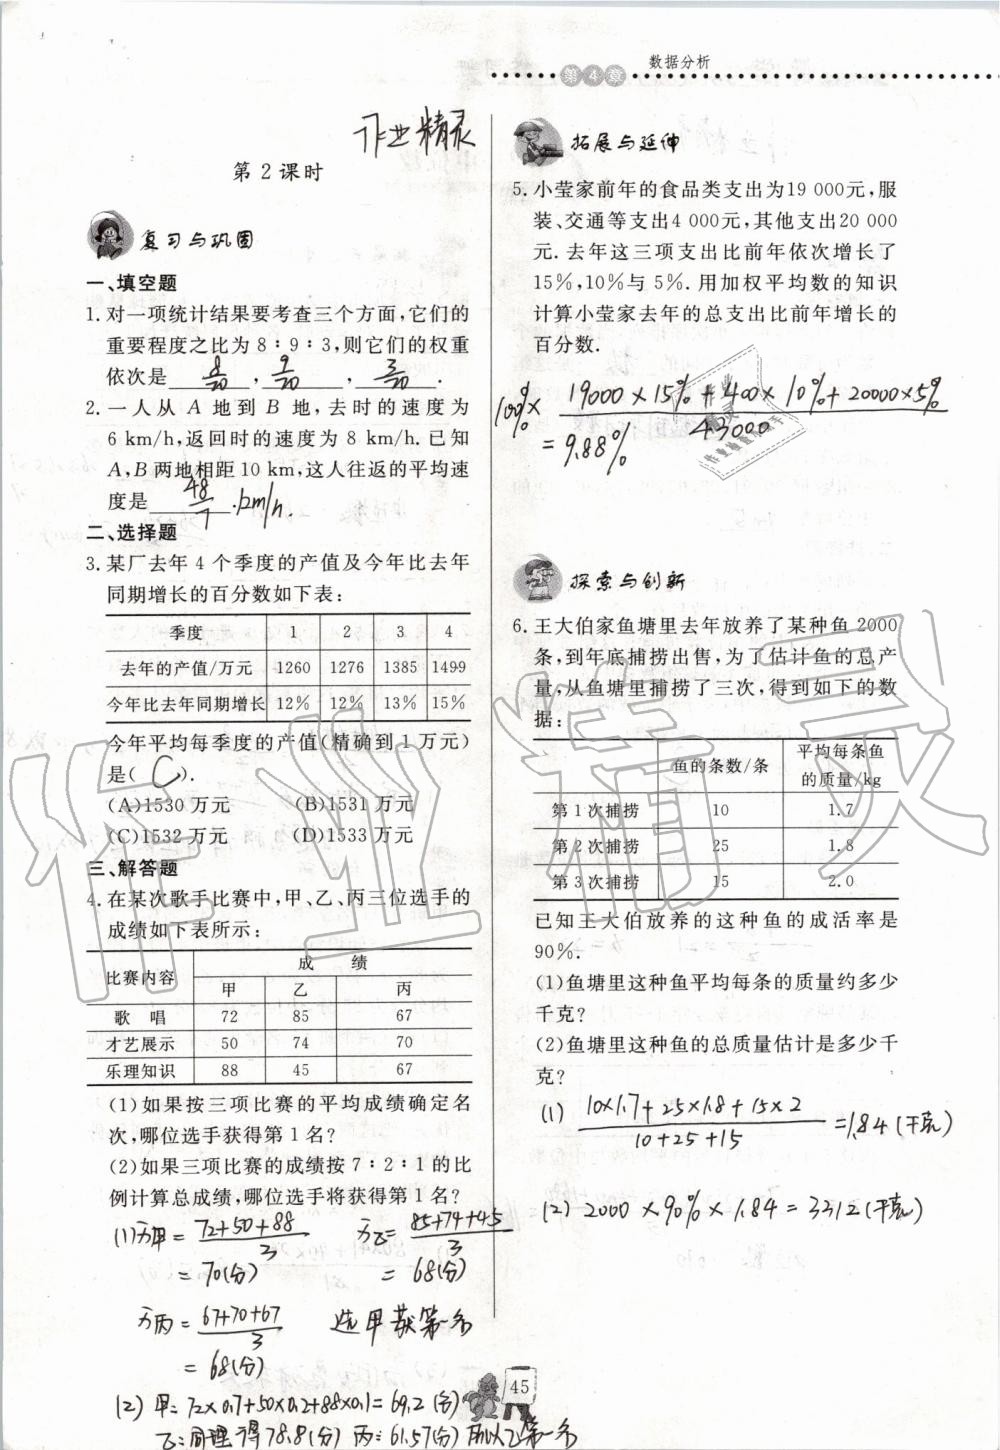 数据分析
第4章
作业精灵
第2课时
复习与巩固
一、填空题
1. 对一项统计结果要考查三个方面,它们的
重要程度之比为 8∶9∶3,则它们的权重
依次是 8/20 , 9/20 , 3/20 .
2. 一人从 A 地到 B 地,去时的速度为
6 km/h,返回时的速度为 8 km/h. 已知
A,B 两地相距 10 km,这人往返的平均速
度是 48/7 km/h.
二、选择题
3. 某厂去年 4 个季度的产值及今年比去年
同期增长的百分数如下表:
季度 1 2 3 4
去年的产值/万元 1260 1276 1385 1499
今年比去年同期增长 12% 12% 13% 15%
今年平均每季度的产值(精确到 1 万元)
是( C ).
(A)1530 万元 (B)1531 万元
(C)1532 万元 (D)1533 万元
三、解答题
4. 在某次歌手比赛中,甲、乙、丙三位选手的
成绩如下表所示:
比赛内容 成 绩
甲 乙 丙
歌 唱 72 85 67
才艺展示 50 74 70
乐理知识 88 45 67
(1)如果按三项比赛的平均成绩确定名
次,哪位选手获得第 1 名?
(2)如果三项比赛的成绩按 7∶2∶1 的比
例计算总成绩,哪位选手将获得第 1 名?
(1) 甲 = (72+50+88)/3 乙 = (85+74+45)/3
= 70(分) = 68(分)
丙 = (67+70+67)/3 选甲获第一名
= 68(分)
(2) 甲: 72×0.7+50×0.2+88×0.1=69.2(分)
乙:同理得78.8(分) 丙:61.57(分) 所以乙第一名
拓展与延伸
5. 小莹家前年的食品类支出为19 000元,服
装、交通等支出4 000元,其他支出20 000
元. 去年这三项支出比前年依次增长了
15%,10%与 5%. 用加权平均数的知识
计算小莹家去年的总支出比前年增长的
百分数.
100%× (19000×15%+400×10%+20000×5%)/43000
= 9.88%
探索与创新
6. 王大伯家鱼塘里去年放养了某种鱼 2000
条,到年底捕捞出售,为了估计鱼的总产
量,从鱼塘里捕捞了三次,得到如下的数
据:
鱼的条数/条 平均每条鱼的质量/kg
第 1 次捕捞 10 1.7
第 2 次捕捞 25 1.8
第 3 次捕捞 15 2.0
已知王大伯放养的这种鱼的成活率是
90%.
(1)鱼塘里这种鱼平均每条的质量约多少
千克?
(2)鱼塘里这种鱼的总质量估计是多少千
克?
(1) (10×1.7+25×1.8+15×2)/(10+25+15) =1.84(千克)
(2) 2000×90%×1.84=3312(千克)
45
作业精灵